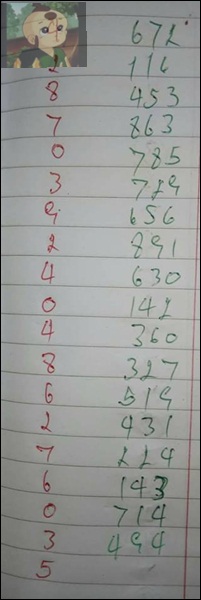 672
2 116
8 453
7 863
0 785
3 729
9 656
2 891
4 630
0 142
4 360
8 327
6 519
2 431
7 224
6 143
0 714
3 494
5